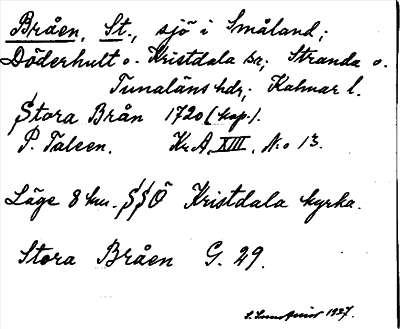 Bråen, St., sjö i Småland;
Döderhult o. Kristdala sr; Stranda o.
Tunaläns hdr; Kalmar l.
Stora Brån 1720 (kop.).
P. Taleen. Kr.A. XIII. N:o 13.
Läge 8 km. SSÖ Kristdala kyrka.
Stora Bråen G. 29.
1927.